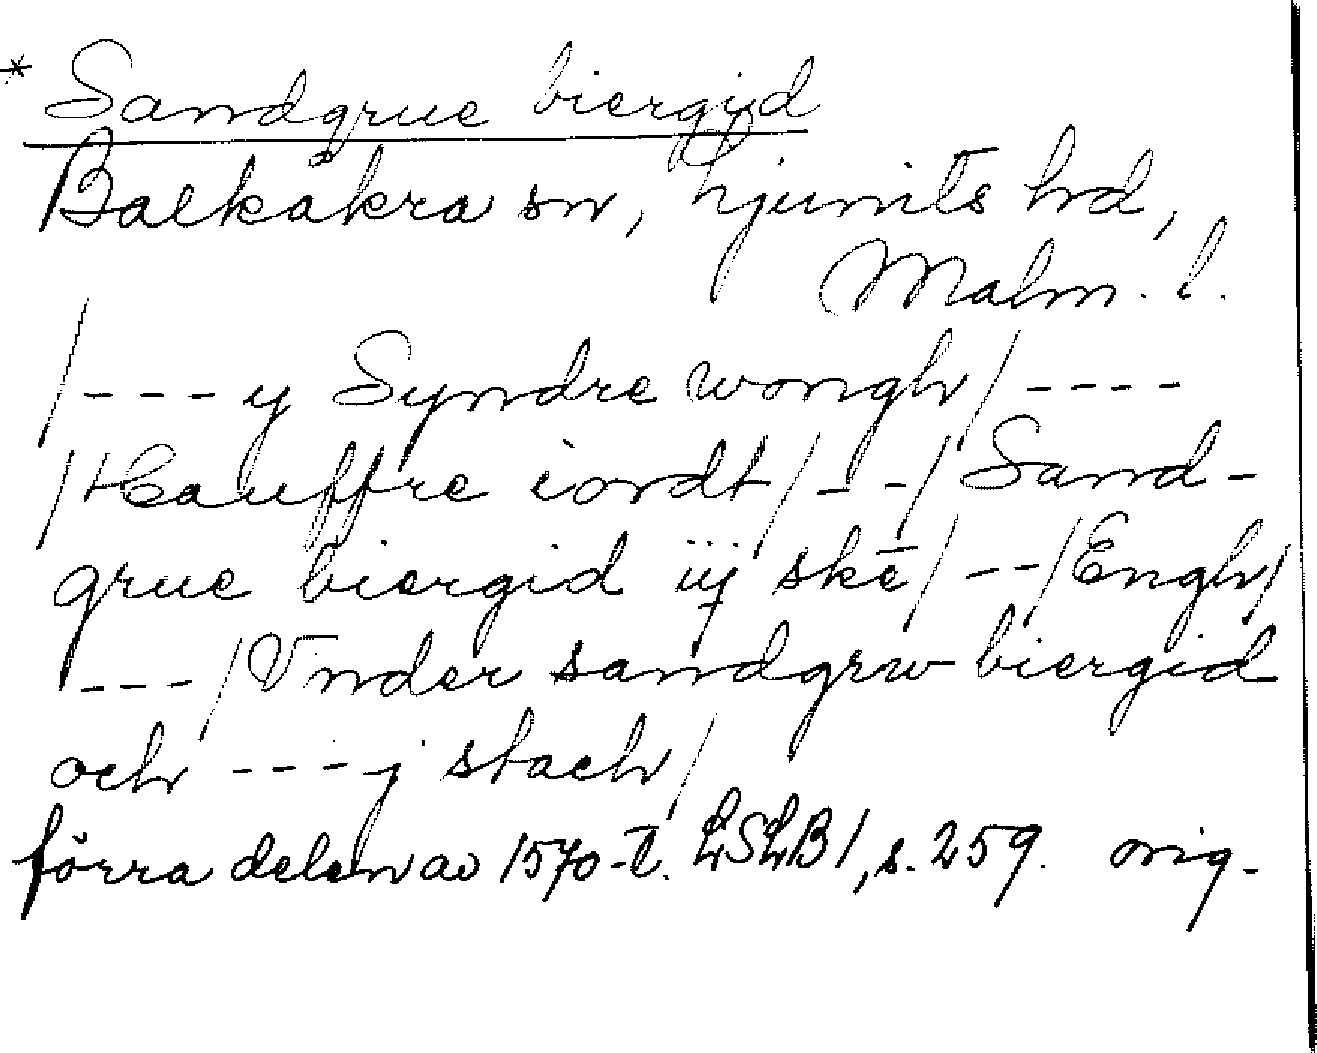 * Sandgrue biergid
Balkåkra sn, Ljunits hd,
Malm. l.
/---y Syndre wongh/----
/Hauffre iordt/--/Sand-
grue biergid iij skē/--/Engh/
---/Vnder sandgrw biergid
och ---j stach/
förra delen av 1570-t. LSLB1, s. 259. orig.